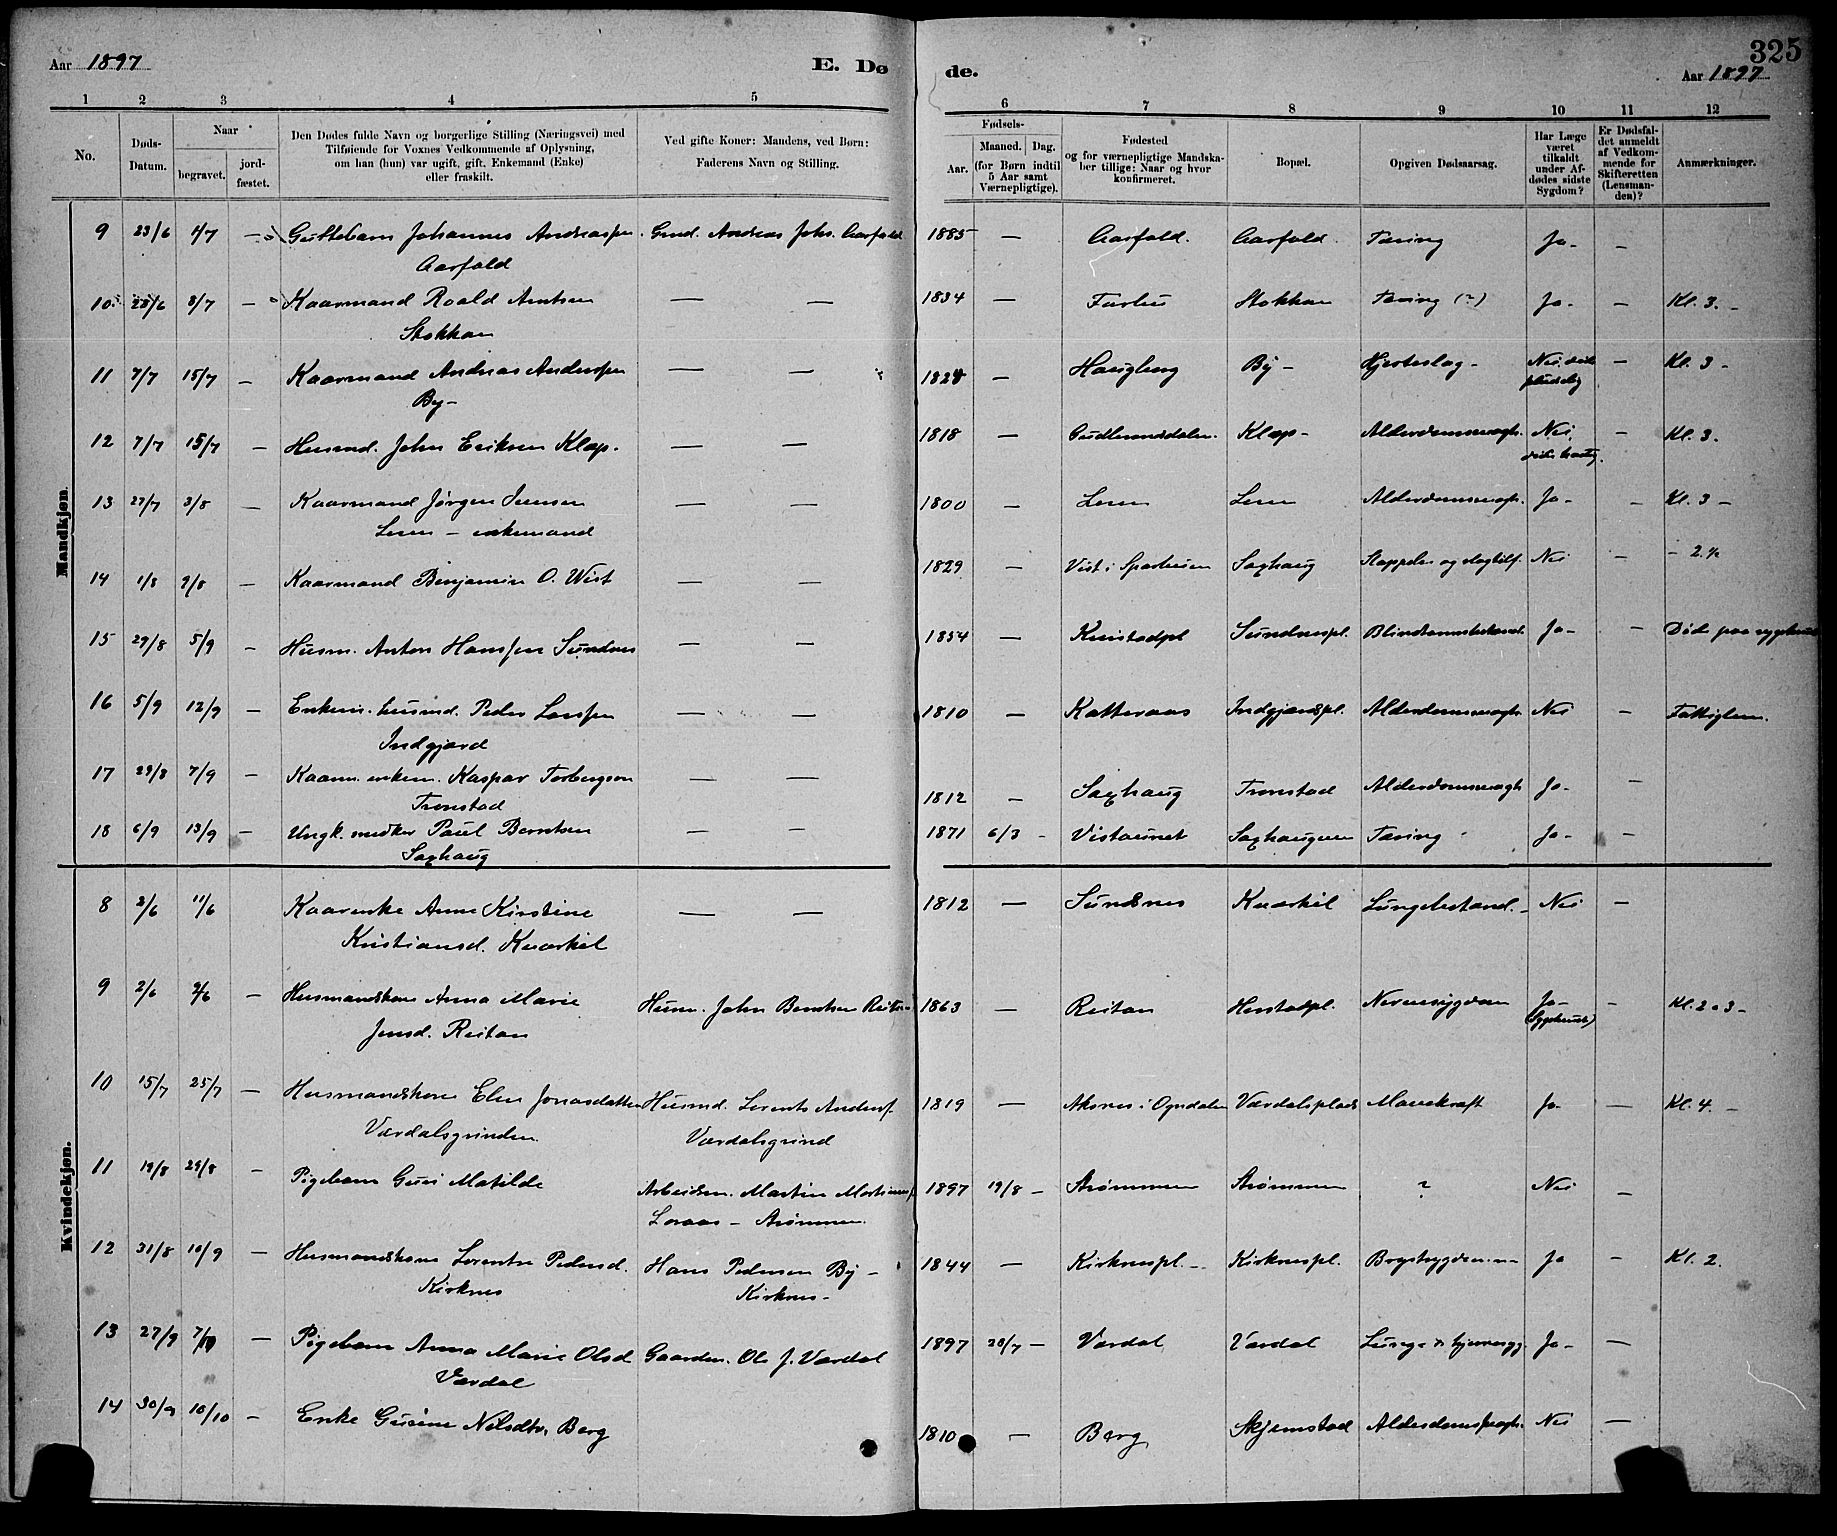 Aar 1897
E. Dø
de.
325
Aar 1897
1 2 3 4 5 6 7 8 9 10 11 12
No.
Døds-Datum.
Naar
begravet.
jord-fæstet.
Den Dødes fulde Navn og borgerlige Stilling (Næringsvei) med
Tilføiende for Voxnes Vedkommende af Oplysning,
om han (hun) var ugift, gift, Enkemand (Enke)
eller fraskilt.
Ved gifte Koner: Mandens, ved Børn:
Faderens Navn og Stilling.
Fødsels-
Aar.
Maaned. Dag.
(for Børn indtil
5 Aar samt
Værnepligtige).
Fødested
og for værnepligtige Mandska-
ber tillige: Naar og hvor
konfirmeret.
Bopæl.
Opgiven Dødsaarsag.
Har Læge
været
tilkaldt
under Af-
dødes sidste
Sygdom?
Er Dødsfal-
det anmeldt
af Vedkom-
mende for
Skifteretten
(Lensman-
den)?
Anmærkninger.
Mandkjøn.
9 23/6 4/7 — Guttebarn Johannes Andreassen Gmd. Andreas Johs. Aarfald 1885 — Aarfald. Aarfald. Tæring Ja — —
Aarfald
10 28/6 8/7 — Kaarmand Roald Arntsen — — 1834 — Stokkan Tæring (?) Ja — — Kl. 3. —
Stokkan
11 7/7 15/7 — Kaarmand Andreas Anderssen — — 1824 — Haugberg By — Hjerteslag — Nei, døde — Kl. 3 —
By — pludselig
12 7/7 15/7 — Husmd. John Eriksen Klap. — — 1818 — Gudbrandsdalen. Klap — Alderdomssvagh. Nei, — Kl. 3.
døde hastig.
13 27/7 3/8 — Kaarmand Jørgen Jensen — — 1800 — Leren Leren Alderdomssvagh. Ja — — Kl. 3 —
Leren — enkemand
14 1/8 9/8 — Kaarmand Benjamin O. Wist — — 1829 — Vist i Sparbuen Saxhaug og slagtilf. Nei —
15 29/8 5/9 — Husm. Anton Hanssen Sundnes — — 1854 — Sundnespl. Blindtarmsbetænd. Ja — — Døde paa sygehuset
16 5/9 12/9 — Enkem. husmd. Peder Larssen — — 1810 — Katteraas Indgjærdspl. Alderdomssvagh. Nei — Fattiglem.
Indgjærd
17 29/8 7/9 — Kaarm. enkem. Kaspar Torbergsen — — 1812 — Saxhaug Tronstad Alderdomssvagh Ja — —
Tronstad
18 6/9 13/9 — Ungk. snedker Paul Berntsen — — 1871 6/3 — Vistaunet Saxhaugvan Tæring Ja — —
Saxhaug
Kvindekjøn.
8 3/6 11/6 Kaarenke Anne Kirstine — — 1812 — Sundsnes Kværkil Lungebetænd. — Nei —
Kristiansd. Kværkil
9 2/6 9/6 — Husmandskone Anna Marie Husm. John Berntsen Reitan 1863 — Reitan Nervesygdom Ja — — Kl. 2 o 3 —
Jensd. Reitan (Sygehuset)
10 15/7 25/7 — Husmandskone Elen Jonasdatter Husmd. Lorents Anders. 1819 — Aksnes i Ogndalen Værdalsplads Mavekræft Ja — — Kl. 4. —
Værdalsgrinden Værdalsgrind
11 19/8 29/8 — Pigebarn Matilde Arbeidsm. Martin 1897 19/8 — Strømmen Strømmen ? Nei —
Loraas — Strømmen.
12 31/8 10/9 — Husmandskone Lorentse Pedersd. Hans Pedersen By — 1844 — Kirknespl. — Kirknespl. Brystsygdom — Ja — Kl. 2.
Kirknes Kirknes —
13 27/9 7/10 — Pigebarn Anna Marie Olsd Gaardm. Ole J. Værdal 1897 20/7 — Værdal Værdal Lunge- Ja — —
Værdal
14 30/9 10/10 — Enke Nilsdtr. Berg 1810 — Berg Skjemstad Alderdomssvagh. Nei —